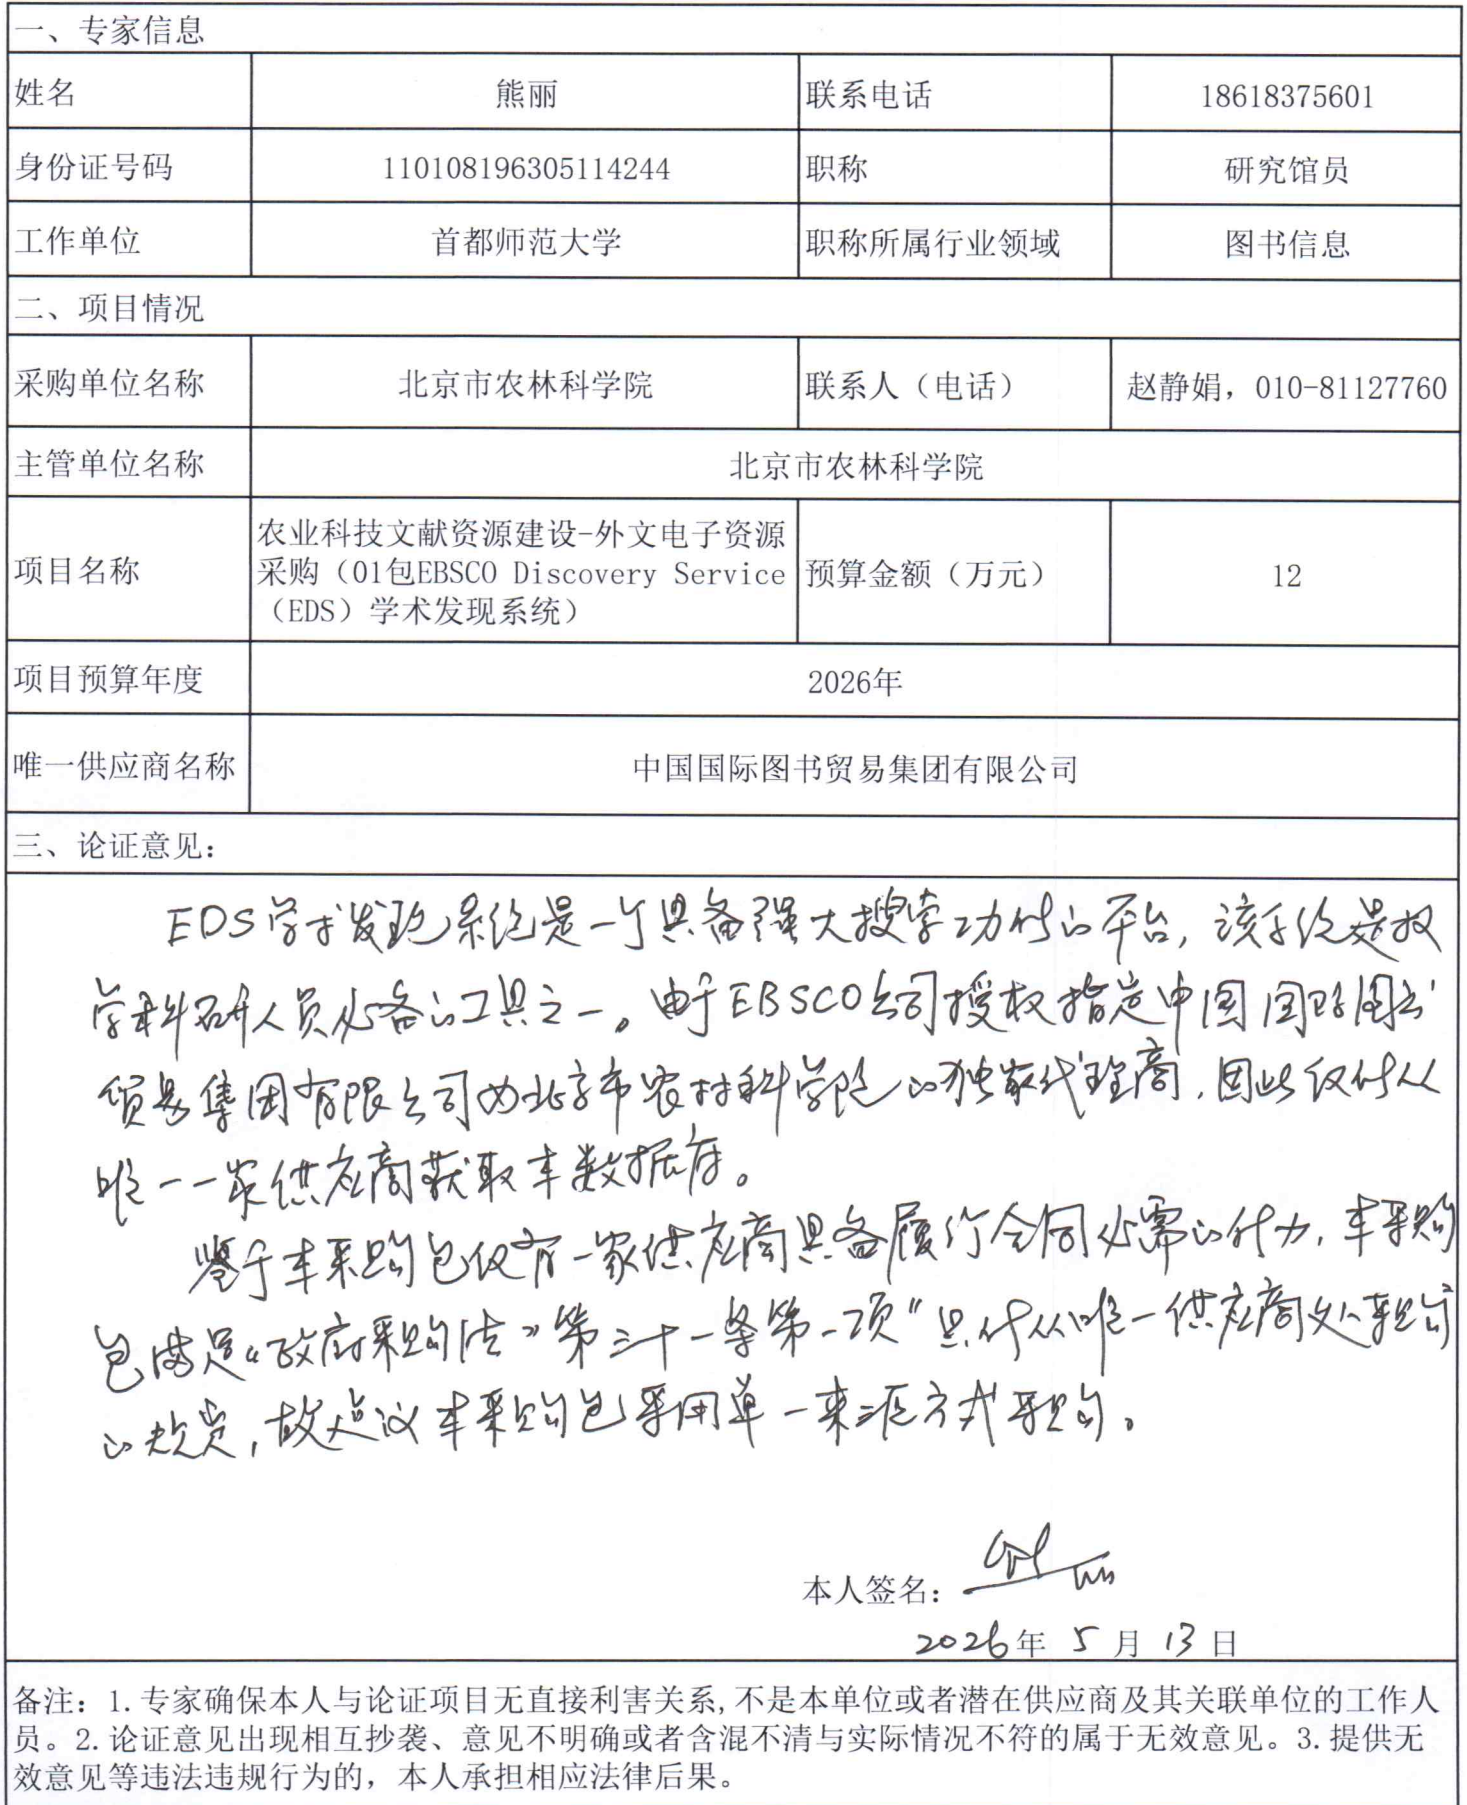 一、专家信息
姓名 熊丽 联系电话 18618375601
身份证号码 110108196305114244 职称 研究馆员
工作单位 首都师范大学 职称所属行业领域 图书信息
二、项目情况
采购单位名称 北京市农林科学院 联系人（电话） 赵静娟，010-81127760
主管单位名称 北京市农林科学院
农业科技文献资源建设-外文电子资源
项目名称 采购（01包EBSCO Discovery Service 预算金额（万元） 12
（EDS）学术发现系统）
项目预算年度 2026年
唯一供应商名称 中国国际图书贸易集团有限公司
三、论证意见：
EDS学术发现系统是一个具备强大搜索功能的平台，该系统是教
学科研人员必备的工具之一。由于EBSCO公司授权指定中国国际图书
贸易集团有限公司为北京市农林科学院的独家代理商，因此仅能从
唯一一家供应商获取本数据库。
鉴于本采购包仅有一家供应商具备履行合同必需的能力，本采购
包满足《政府采购法》第三十一条第一项“只能从唯一供应商处采购
的规定，故建议本采购包采用单一来源方式采购。
本人签名：熊丽
2026年 5 月 13 日
备注：1.专家确保本人与论证项目无直接利害关系,不是本单位或者潜在供应商及其关联单位的工作人
员。2.论证意见出现相互抄袭、意见不明确或者含混不清与实际情况不符的属于无效意见。3.提供无
效意见等违法违规行为的，本人承担相应法律后果。